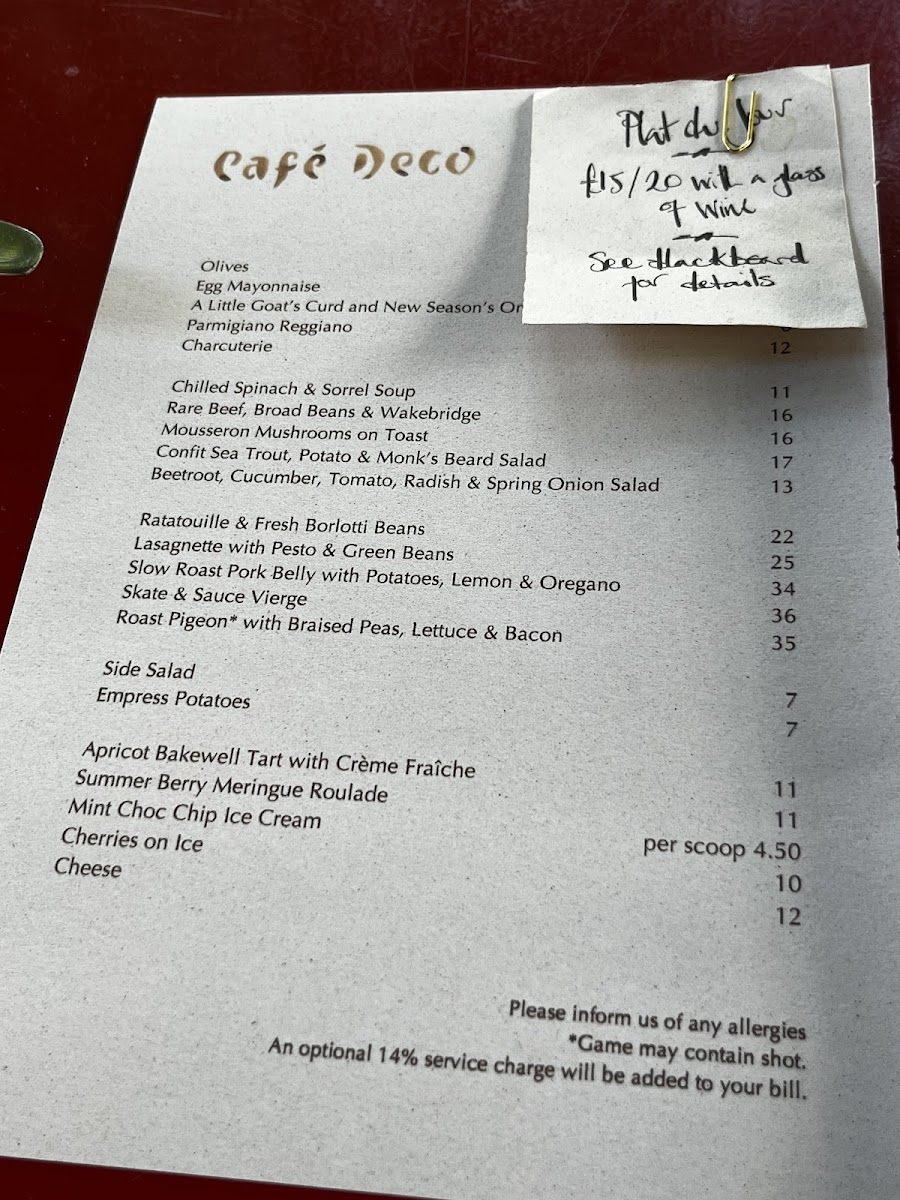 Café Deco
Plat du Jour
£15/20 with a glass
of Wine
See blackboard
for details
Olives
Egg Mayonnaise
A Little Goat's Curd and New Season's
Parmigiano Reggiano
Charcuterie 12
Chilled Spinach & Sorrel Soup 11
Rare Beef, Broad Beans & Wakebridge 16
Mousseron Mushrooms on Toast 16
Confit Sea Trout, Potato & Monk's Beard Salad 17
Beetroot, Cucumber, Tomato, Radish & Spring Onion Salad 13
Ratatouille & Fresh Borlotti Beans 22
Lasagnette with Pesto & Green Beans 25
Slow Roast Pork Belly with Potatoes, Lemon & Oregano 34
Skate & Sauce Vierge 36
Roast Pigeon* with Braised Peas, Lettuce & Bacon 35
Side Salad 7
Empress Potatoes 7
Apricot Bakewell Tart with Crème Fraîche 11
Summer Berry Meringue Roulade 11
Mint Choc Chip Ice Cream per scoop 4.50
Cherries on Ice 10
Cheese 12
Please inform us of any allergies
*Game may contain shot.
An optional 14% service charge will be added to your bill.